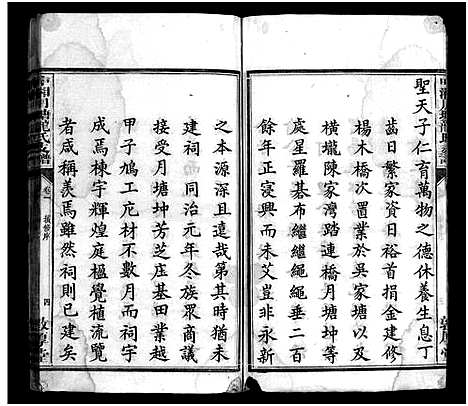 聖天子仁育萬物之德休養生息丁
齒日繁家資日裕首捐金建修
楊木橋嗣於吳家塘以及
橫壠陳家灣踏連橋月塘坤等
處星羅碁布繼繼繩繩垂二百
餘年正寖興而未艾豈非永新
之本源深且遠哉第其時猶未
建祠 同治元年冬族眾商議
接受月塘坤芳芝庄基田業越
甲子鳩工庀材不數月而祠宇
成焉棟宇輝煌庭楹覺植流覽
者咸稱美焉雖然祠則已建矣
卷一 撥修序
四 敦厚堂